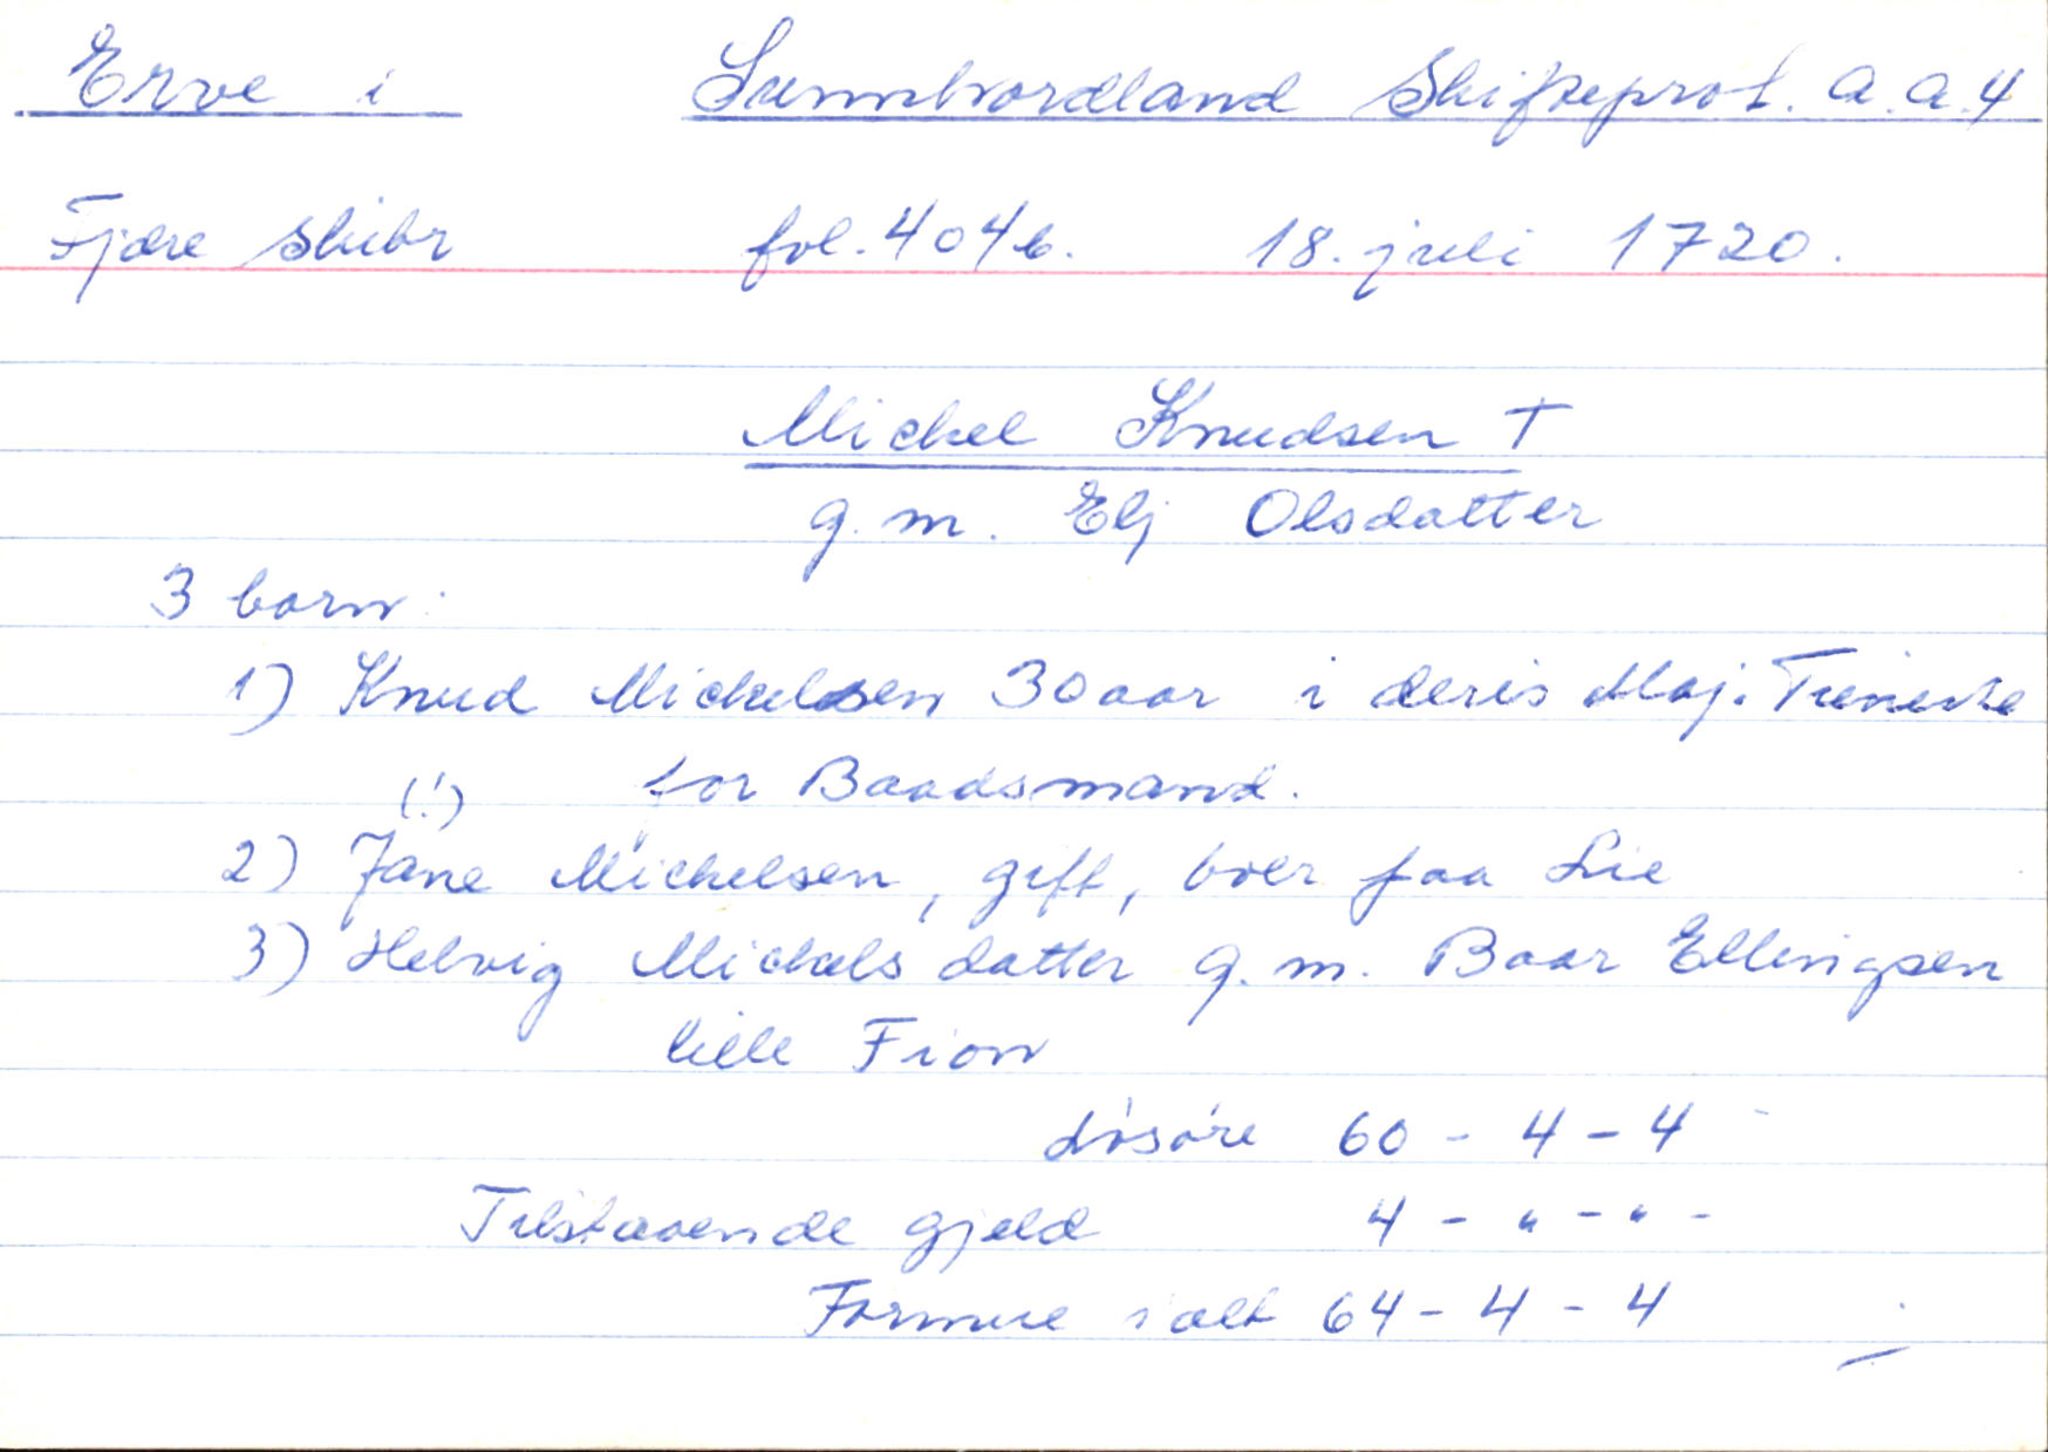 Erve i Sunnhordland Skifteprot. A.a.4
Fjære skibr fol. 404b. 18. juli 1720.
Michel Knudsen †
g. m. Elj Olsdatter
3 born:
1) Knud Michelsen 30 aar i deris Maj. Tieniste
for Baadsmand.
(!)
2) Jane Michelsen, gift, boer paa Lie
3) Helvig Michels datter g. m. Baar Ellingsen
lille Fion
Løsøre 60 - 4 - 4
Tilstaaende gjeld 4 - " - " -
Formue ialt 64 - 4 - 4